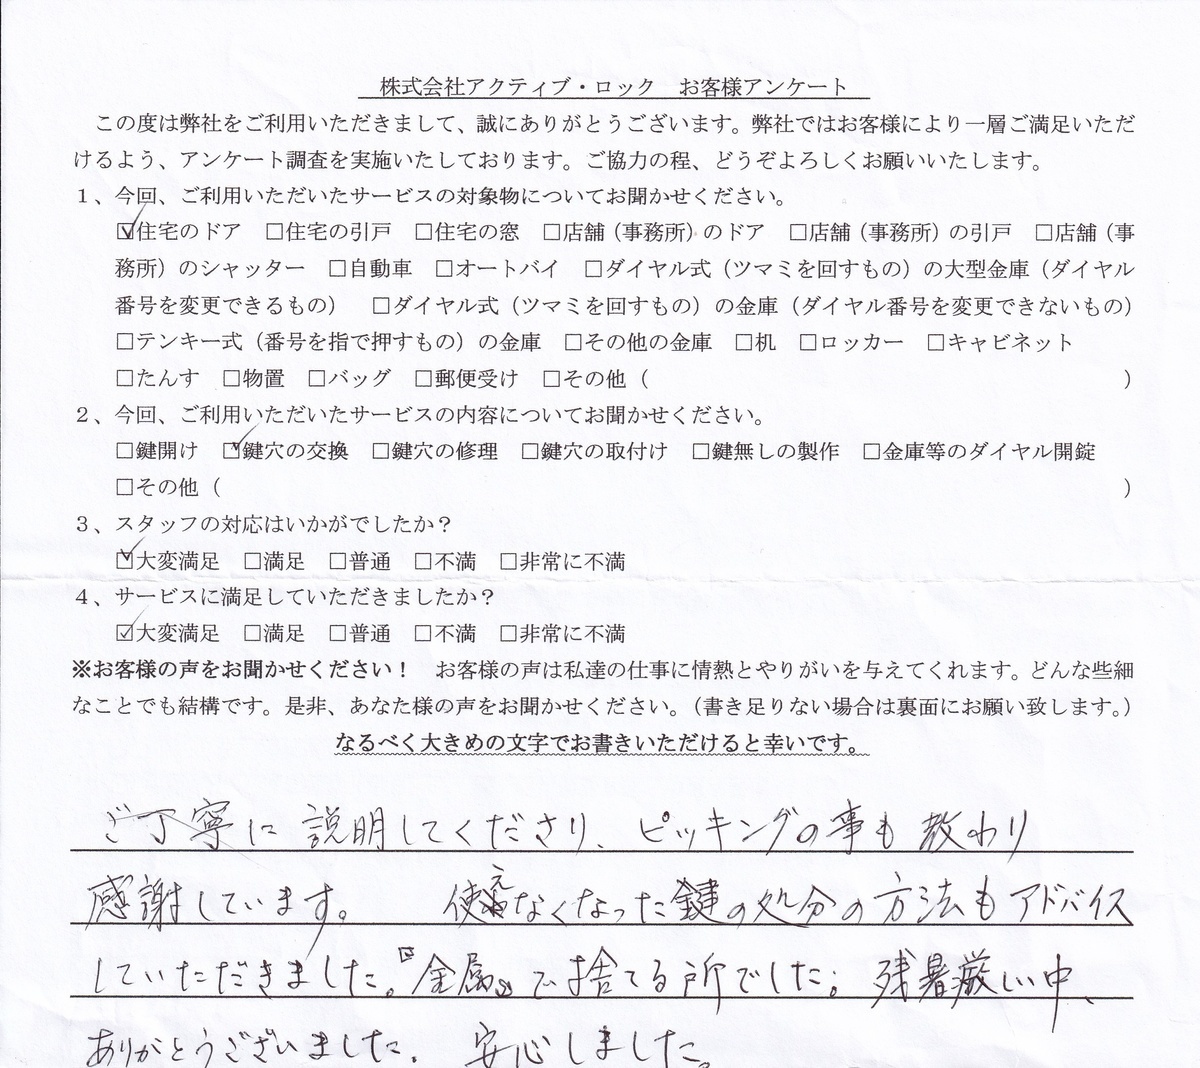 株式会社アクティブ・ロック　お客様アンケート
この度は弊社をご利用いただきまして、誠にありがとうございます。弊社ではお客様により一層ご満足いただ
けるよう、アンケート調査を実施いたしております。ご協力の程、どうぞよろしくお願いいたします。
１、今回、ご利用いただいたサービスの対象物についてお聞かせください。
☑住宅のドア　□住宅の引戸　□住宅の窓　□店舗（事務所）のドア　□店舗（事務所）の引戸　□店舗（事
務所）のシャッター　□自動車　□オートバイ　□ダイヤル式（ツマミを回すもの）の大型金庫（ダイヤル
番号を変更できるもの）　□ダイヤル式（ツマミを回すもの）の金庫（ダイヤル番号を変更できないもの）
□テンキー式（番号を指で押すもの）の金庫　□その他の金庫　□机　□ロッカー　□キャビネット
□たんす　□物置　□バッグ　□郵便受け　□その他（　）
２、今回、ご利用いただいたサービスの内容についてお聞かせください。
□鍵開け　☑鍵穴の交換　□鍵穴の修理　□鍵穴の取付け　□鍵無しの製作　□金庫等のダイヤル開錠
□その他（　）
３、スタッフの対応はいかがでしたか？
☑大変満足　□満足　□普通　□不満　□非常に不満
４、サービスに満足していただきましたか？
☑大変満足　□満足　□普通　□不満　□非常に不満
※お客様の声をお聞かせください！　お客様の声は私達の仕事に情熱とやりがいを与えてくれます。どんな些細
なことでも結構です。是非、あなた様の声をお聞かせください。（書き足りない場合は裏面にお願い致します。）
なるべく大きめの文字でお書きいただけると幸いです。
ご丁寧に説明してくださり、ピッキングの事も教わり
感謝しています。　使えなくなった鍵の処分の方法もアドバイス
していただきました。『金属』で捨てる所でした。残暑厳しい中、
ありがとうございました。　安心しました。